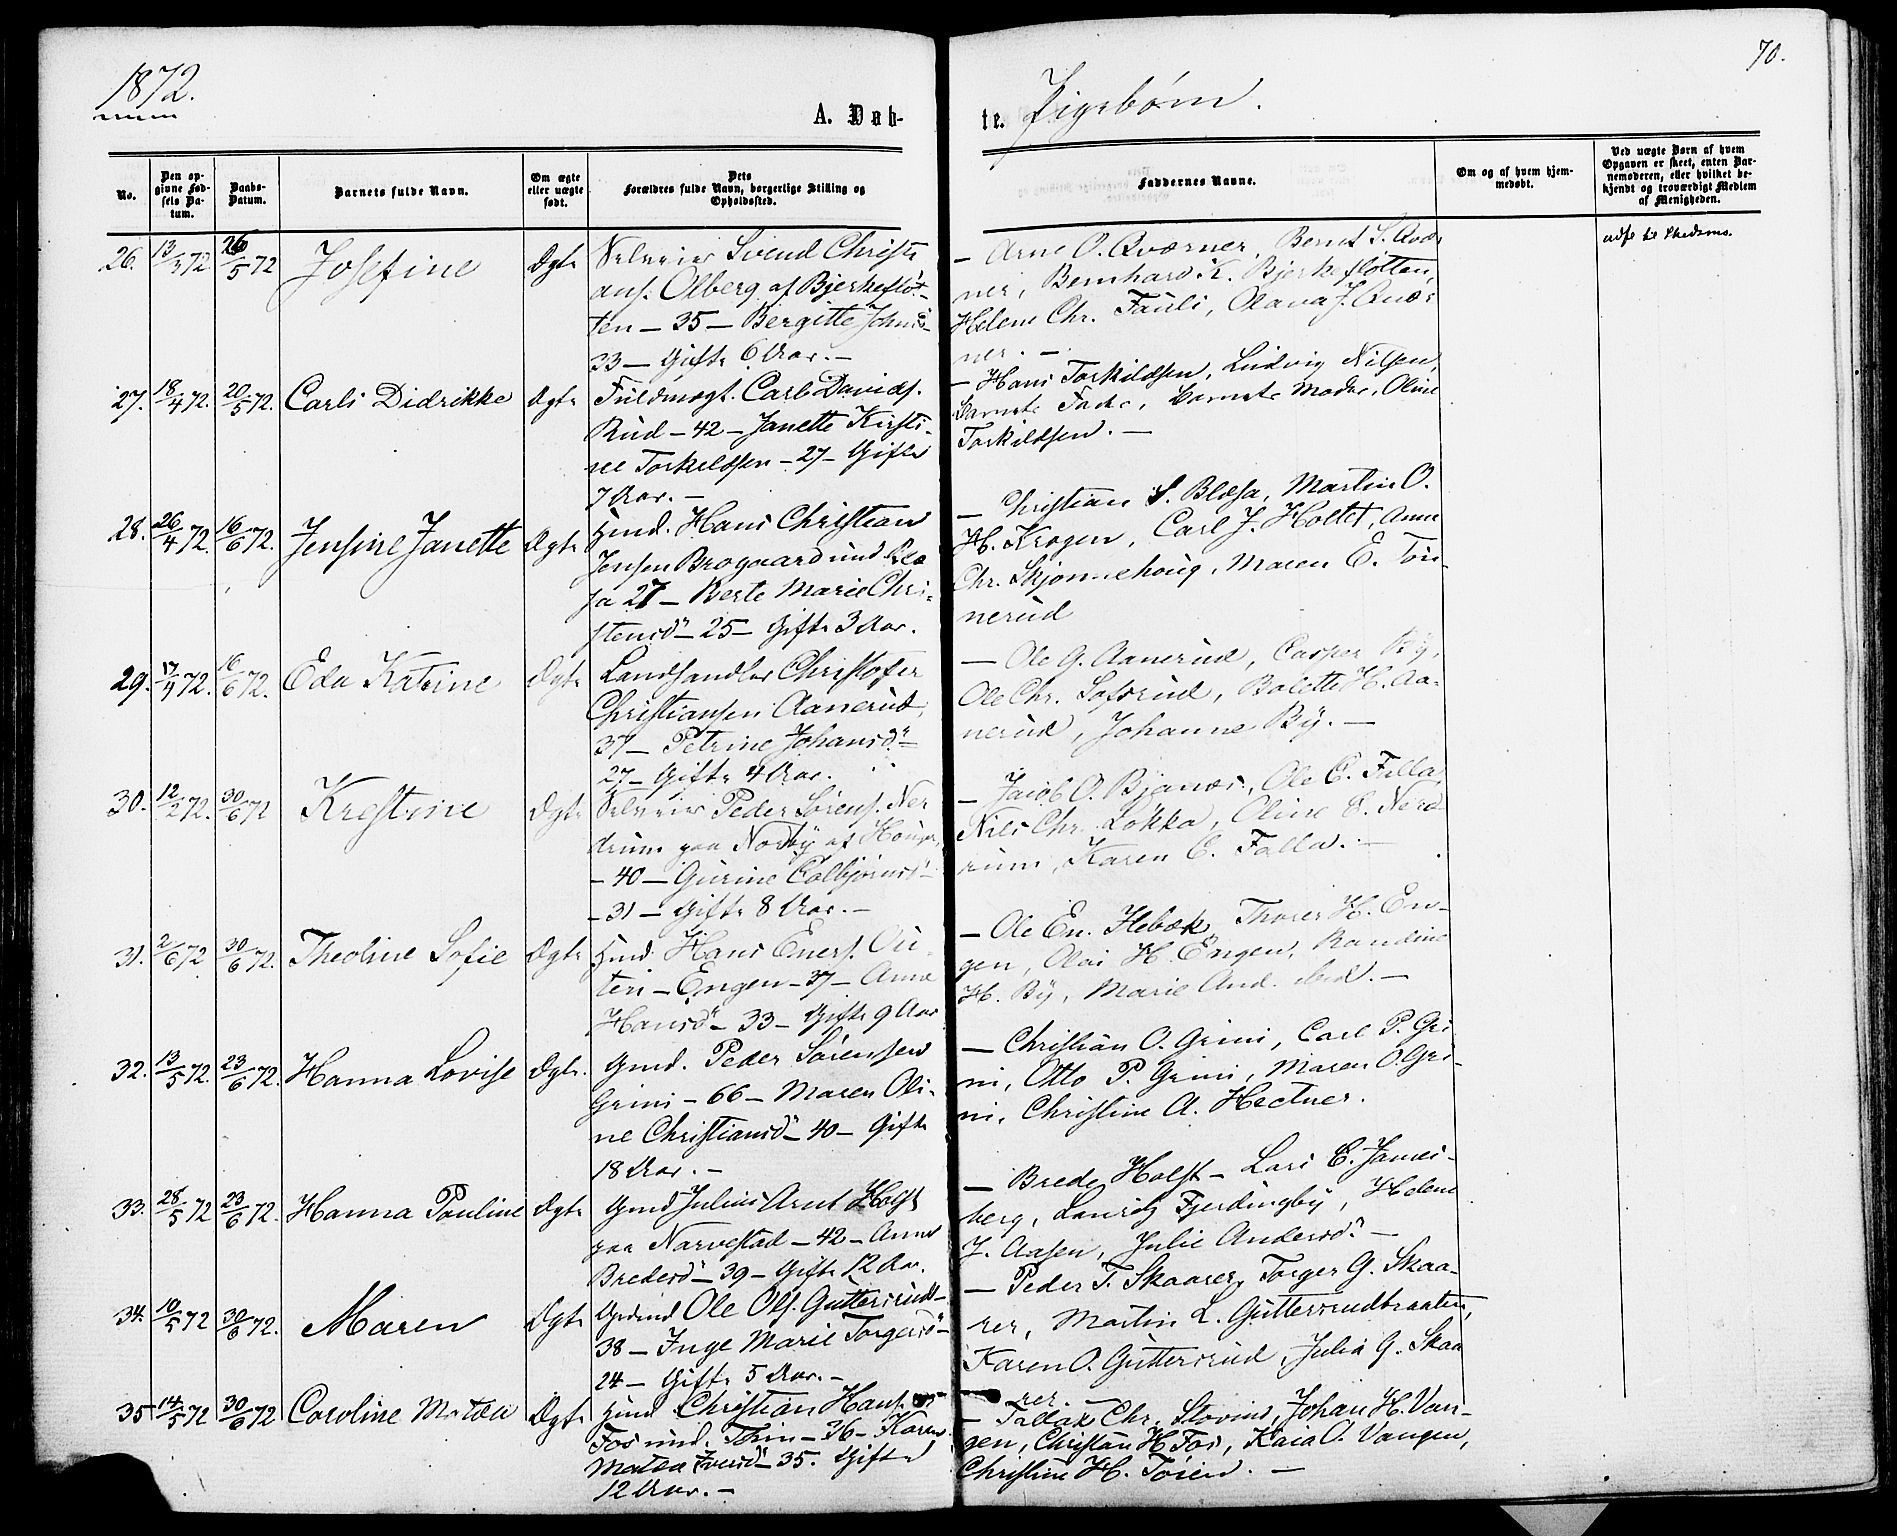 1872.
70.
A. Døb-
te. Pigebørn.
No.
Den op-
givne Fød-
sels Da-
tum.
Daabs-
Datum.
Barnets fulde Navn.
Om ægte
eller uægte
født.
Dets
Forældres fulde Navn, borgerlige Stilling og
Opholdssted.
Faddernes Navne.
Om og af hvem hjem-
medøbt.
Ved uægte Børn af hvem
Opgaven er skeet, enten Bar-
nemoderen, eller hvilket be-
kjendt og troværdigt Medlem
af Menigheden.
26. 13/3 72 26/5 72 Josefine Ægte
Selveier Svend Christi
ans. Olberg af Bjerkeflöt-
ten - 35 - Bergitte Johns
33 - Gifte 6 Aar. -
- Arne O. Qværner, Bernt S. Qvær
ner, Bernhard K. Bjerkeflötten,
Helene Chr. Fauli, Olava J. Qvær
ner. -
27. 18/4 72. 20/5 72. Carli Didrikke Ægte
Fuldmægt. Carl Davids.
Rud - 42 - Janette Kirsti-
ne Torkildsen - 27 - Gifte
7 Aar. -
- Hans Torkildsen, Ludvig Nilsen,
Barnets Fader, Barnets Moder, Oline
Torkildsen. -
28. 26/4 72. 16/6 72. Jensine Janette Ægte
Hmd. Hans Christian
Jensen Brogaard und. Blæ
sa 27 - Berte Marie Chri-
stensd" - 25 - Gifte 3 Aar.
- Christian S. Blæsa, Martin O.
H. Krogen, Carl J. Holtet, Anne
Chr. Skjønnehoug, Maren E. Tom
nerud
29. 17/4 72. 16/6 72. Eda Katrine Ægte
Landhandler Christofer
Christiansen Aanerud,
37 - Petrine Johansd" -
27 - Gifte 4 Aar.
- Ole G. Aanerud, Casper By,
Ole Chr. Lofsrud, Bolette H. Aa-
nerud, Johanne By. -
30. 12/2 72. 30/6 72 Krestine Ægte
Selveier Peder Sörens. Ner
drum paa Nordby af Houger,
- 40 - Gurine Colbjörnsd" -
- 31 - Gifte 8 Aar. -
- Jacob O. Bjanes, Ole E. Falla,
Nils Chr. Løkka, Oline E. Nerd
rum, Karen E. Falla. -
31. 2/6 72 30/6 72. Theoline Sofie Ægte
Hmd. Hans Eners. Ou-
teri - Engen - 37 - Anne
Hansd" - 33 - Gifte 9 Aar
- Ole En. Hebæk, Thorer H. En-
gen, Olai H. Engen, Randine
H. By, Marie And. ibid. -
32. 13/5 72. 23/6 72. Hanna Lovise Ægte.
Gmd. Peder Sörensen
Grini - 66 - Maren Oli-
ne Christiansd" - 40 - Gifte
18 Aar. -
- Christian O. Grini, Carl P. Gri
ni, Otto P. Grini, Maren O. Gri-
ni, Christine A. Hectner.
33. 28/5 72 23/6 72. Hanna Pauline Ægte
Gmd Julius Arnt Holst
paa Narvestad - 42 - Anne
Bredesd" - 39 - Gifte 12 Aar.
- Brede Holst - Lars E. James-
berg, Lauritz Fjerdingby, Helene
J. Aasen, Julie Andersd" -
34. 10/5 72 30/6 72. Maren Ægte
Gmd Ole Ols. Guttersrud -
38 - Inge Marie Torgersd" -
24 - Gifte 5 Aar. -
- Peder T. Skaarer, Torger G. Skaa-
rer, Martin L. Guttersrudbraaten,
Karen O. Guttersrud, Julia G. Skaa
rer. -
35 14/5 72 30/6 72 Caroline Matea Ægte
Hmd Christian Hans.
Fos und. - 36 - Karen
Matea Iversd" - 35. Gifte
12 Aar. -
- Tallak Chr. Stovind, Johan H. Van-
gen, Christian H. Fos, Kaia O. Vangen,
Christine H. Tören. -